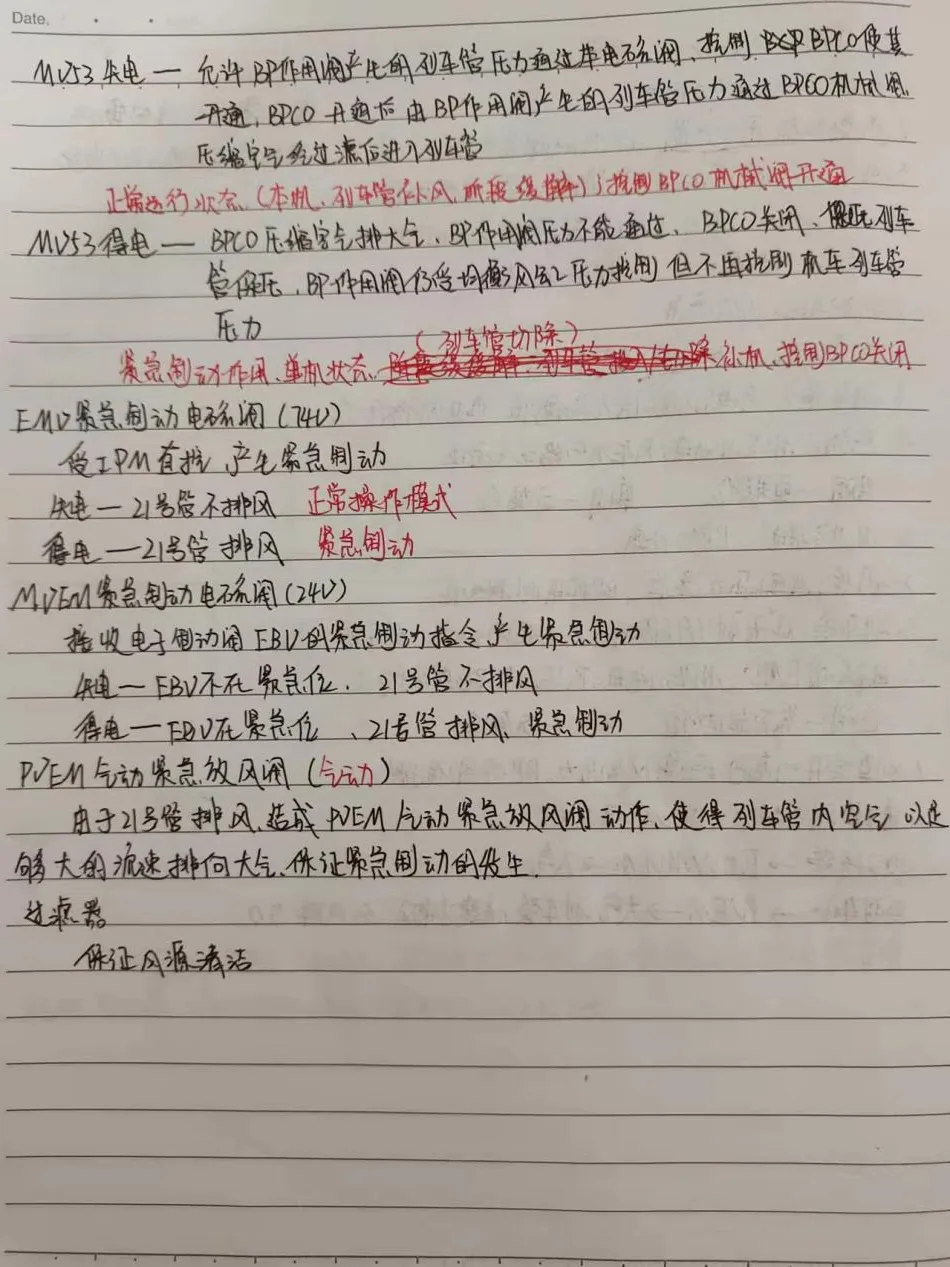 Date.
MV53失电 — 允许BP作用阀产生的列车管压力通过本电磁阀、控制 BPCO使其
开通, BPCO开通后由BP作用阀产生的列车管压力通过BPCO机械阀,
压缩空气经过滤后进入列车管
正常运行状态 (本机、列车管补风、阶段缓解) ; 控制BPCO机械阀开通
MV53得电 — BPCO压缩空气排大气、BP作用阀压力不能通过、BPCO关闭、列车
管保压, BP作用阀仍受均衡风缸压力控制但不再控制机车列车管
压力
(列车管切除)
紧急制动作用、单机状态、补机、控制BPCO关闭
EMV紧急制动电磁阀(74V)
受IPM直控, 产生紧急制动
失电 — 21号管不排风 正常操作模式
得电 — 21号管排风 紧急制动
MVEM紧急制动电磁阀(24V)
接收电子制动阀EBV的紧急制动指令产生紧急制动
失电 — EBV不在紧急位、21号管不排风
得电 — EBV在紧急位、21号管排风、紧急制动
PVEM气动紧急放风阀 (气动)
由于21号管排风、造成PVEM气动紧急放风阀动作、使得列车管内空气以足
够大的流速排向大气、保证紧急制动的发生.
过滤器
保证风源清洁